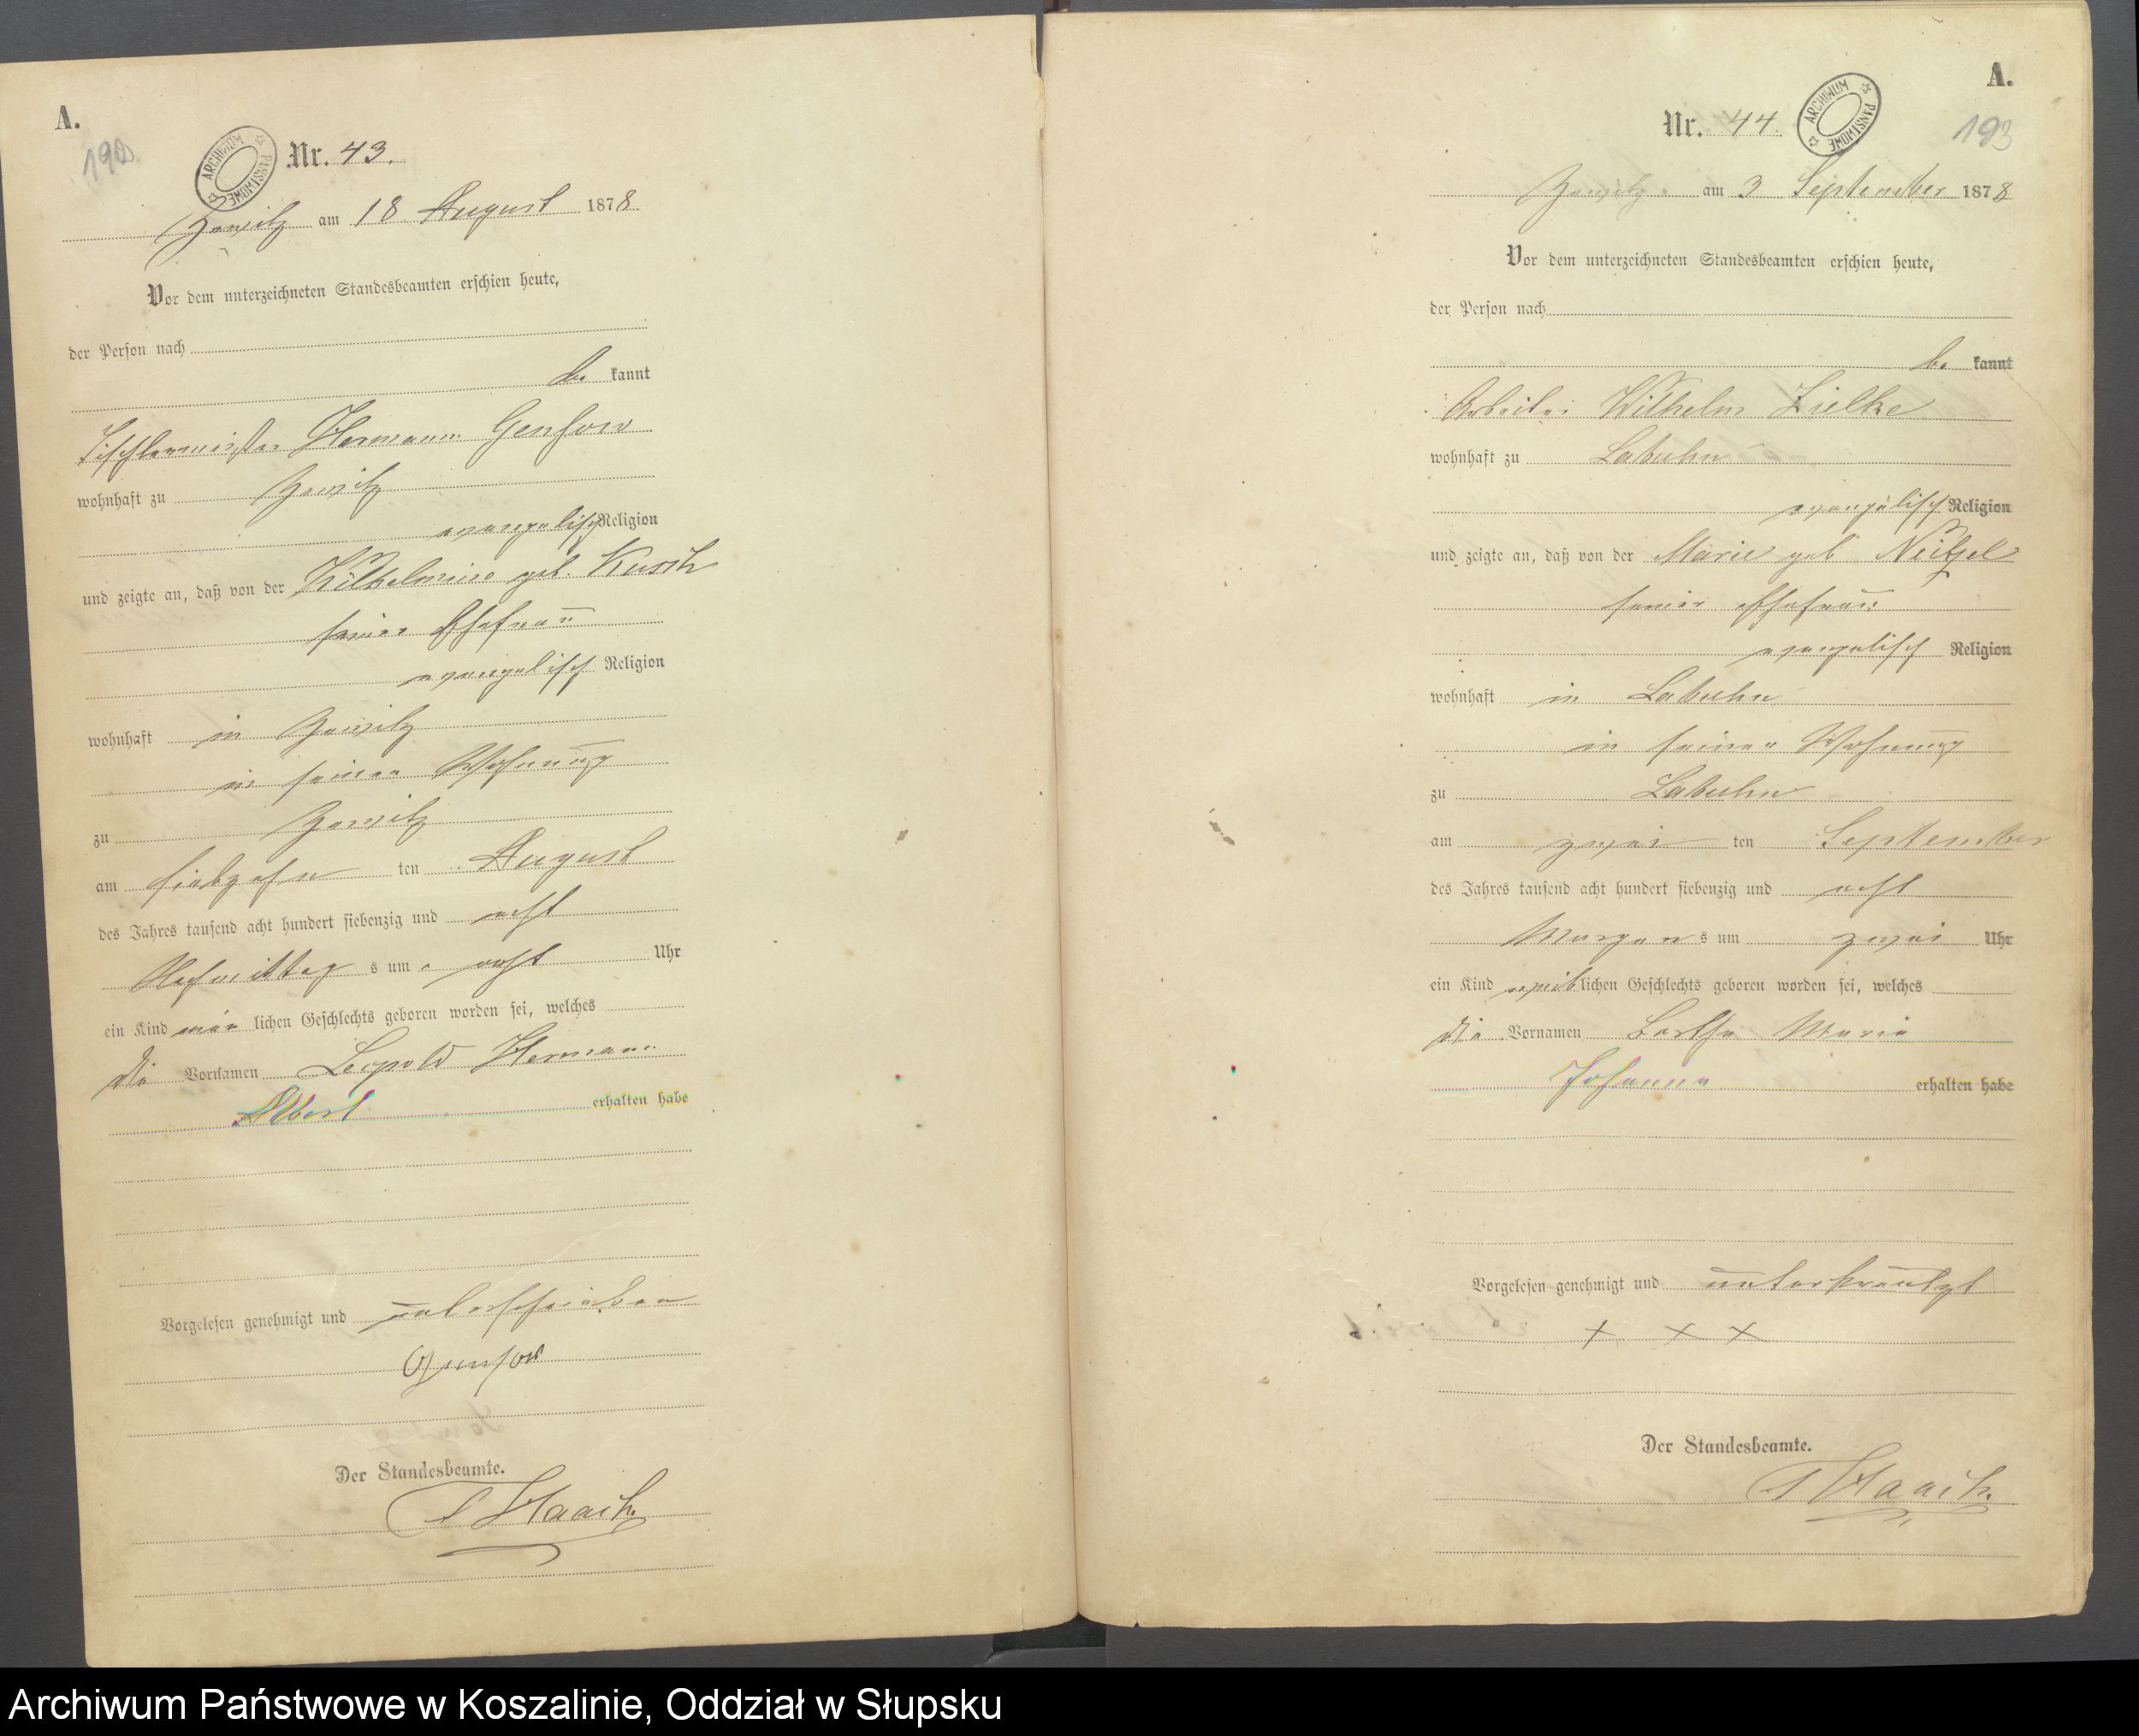 A.
190
ARCHIWUM PAŃSTWOWE
Nr. 43.
Zewitz am 18 August 1878
Vor dem unterzeichneten Standesbeamten erschien heute,
der Person nach
be kannt
Tischlermeister Hermann Genfow
wohnhaft zu Zewitz
evangelisch Religion
und zeigte an, daß von der Wilhelmine geb. Kusch
seiner Ehefrau
evangelisch Religion
wohnhaft in Zewitz
in seiner Wohnung
zu Zewitz
am siebzehn ten August
des Jahres tausend acht hundert siebenzig und acht
Nachmittag s um acht Uhr
ein Kind män lichen Geschlechts geboren worden sei, welches
die Vornamen Leopold Hermann
Albert erhalten habe
Vorgelesen genehmigt und unterschrieben
Genfow
Der Standesbeamte.
Haack
A.
193
ARCHIWUM PAŃSTWOWE
Nr. 44.
Zewitz am 3 September 1878
Vor dem unterzeichneten Standesbeamten erschien heute,
der Person nach
be kannt
Arbeiter Wilhelm Zielke
wohnhaft zu Labuhn
evangelisch Religion
und zeigte an, daß von der Marie geb Neitzel
seiner Ehefrau
evangelisch Religion
wohnhaft in Labuhn
in seiner Wohnung
zu Labuhn
am zwei ten September
des Jahres tausend acht hundert siebenzig und acht
Morgen s um zwei Uhr
ein Kind weiblichen Geschlechts geboren worden sei, welches
die Vornamen Bertha Marie
Johanna erhalten habe
Vorgelesen genehmigt und unterkreutzt
+ × ×
Der Standesbeamte.
Haack.
Archiwum Państwowe w Koszalinie, Oddział w Słupsku